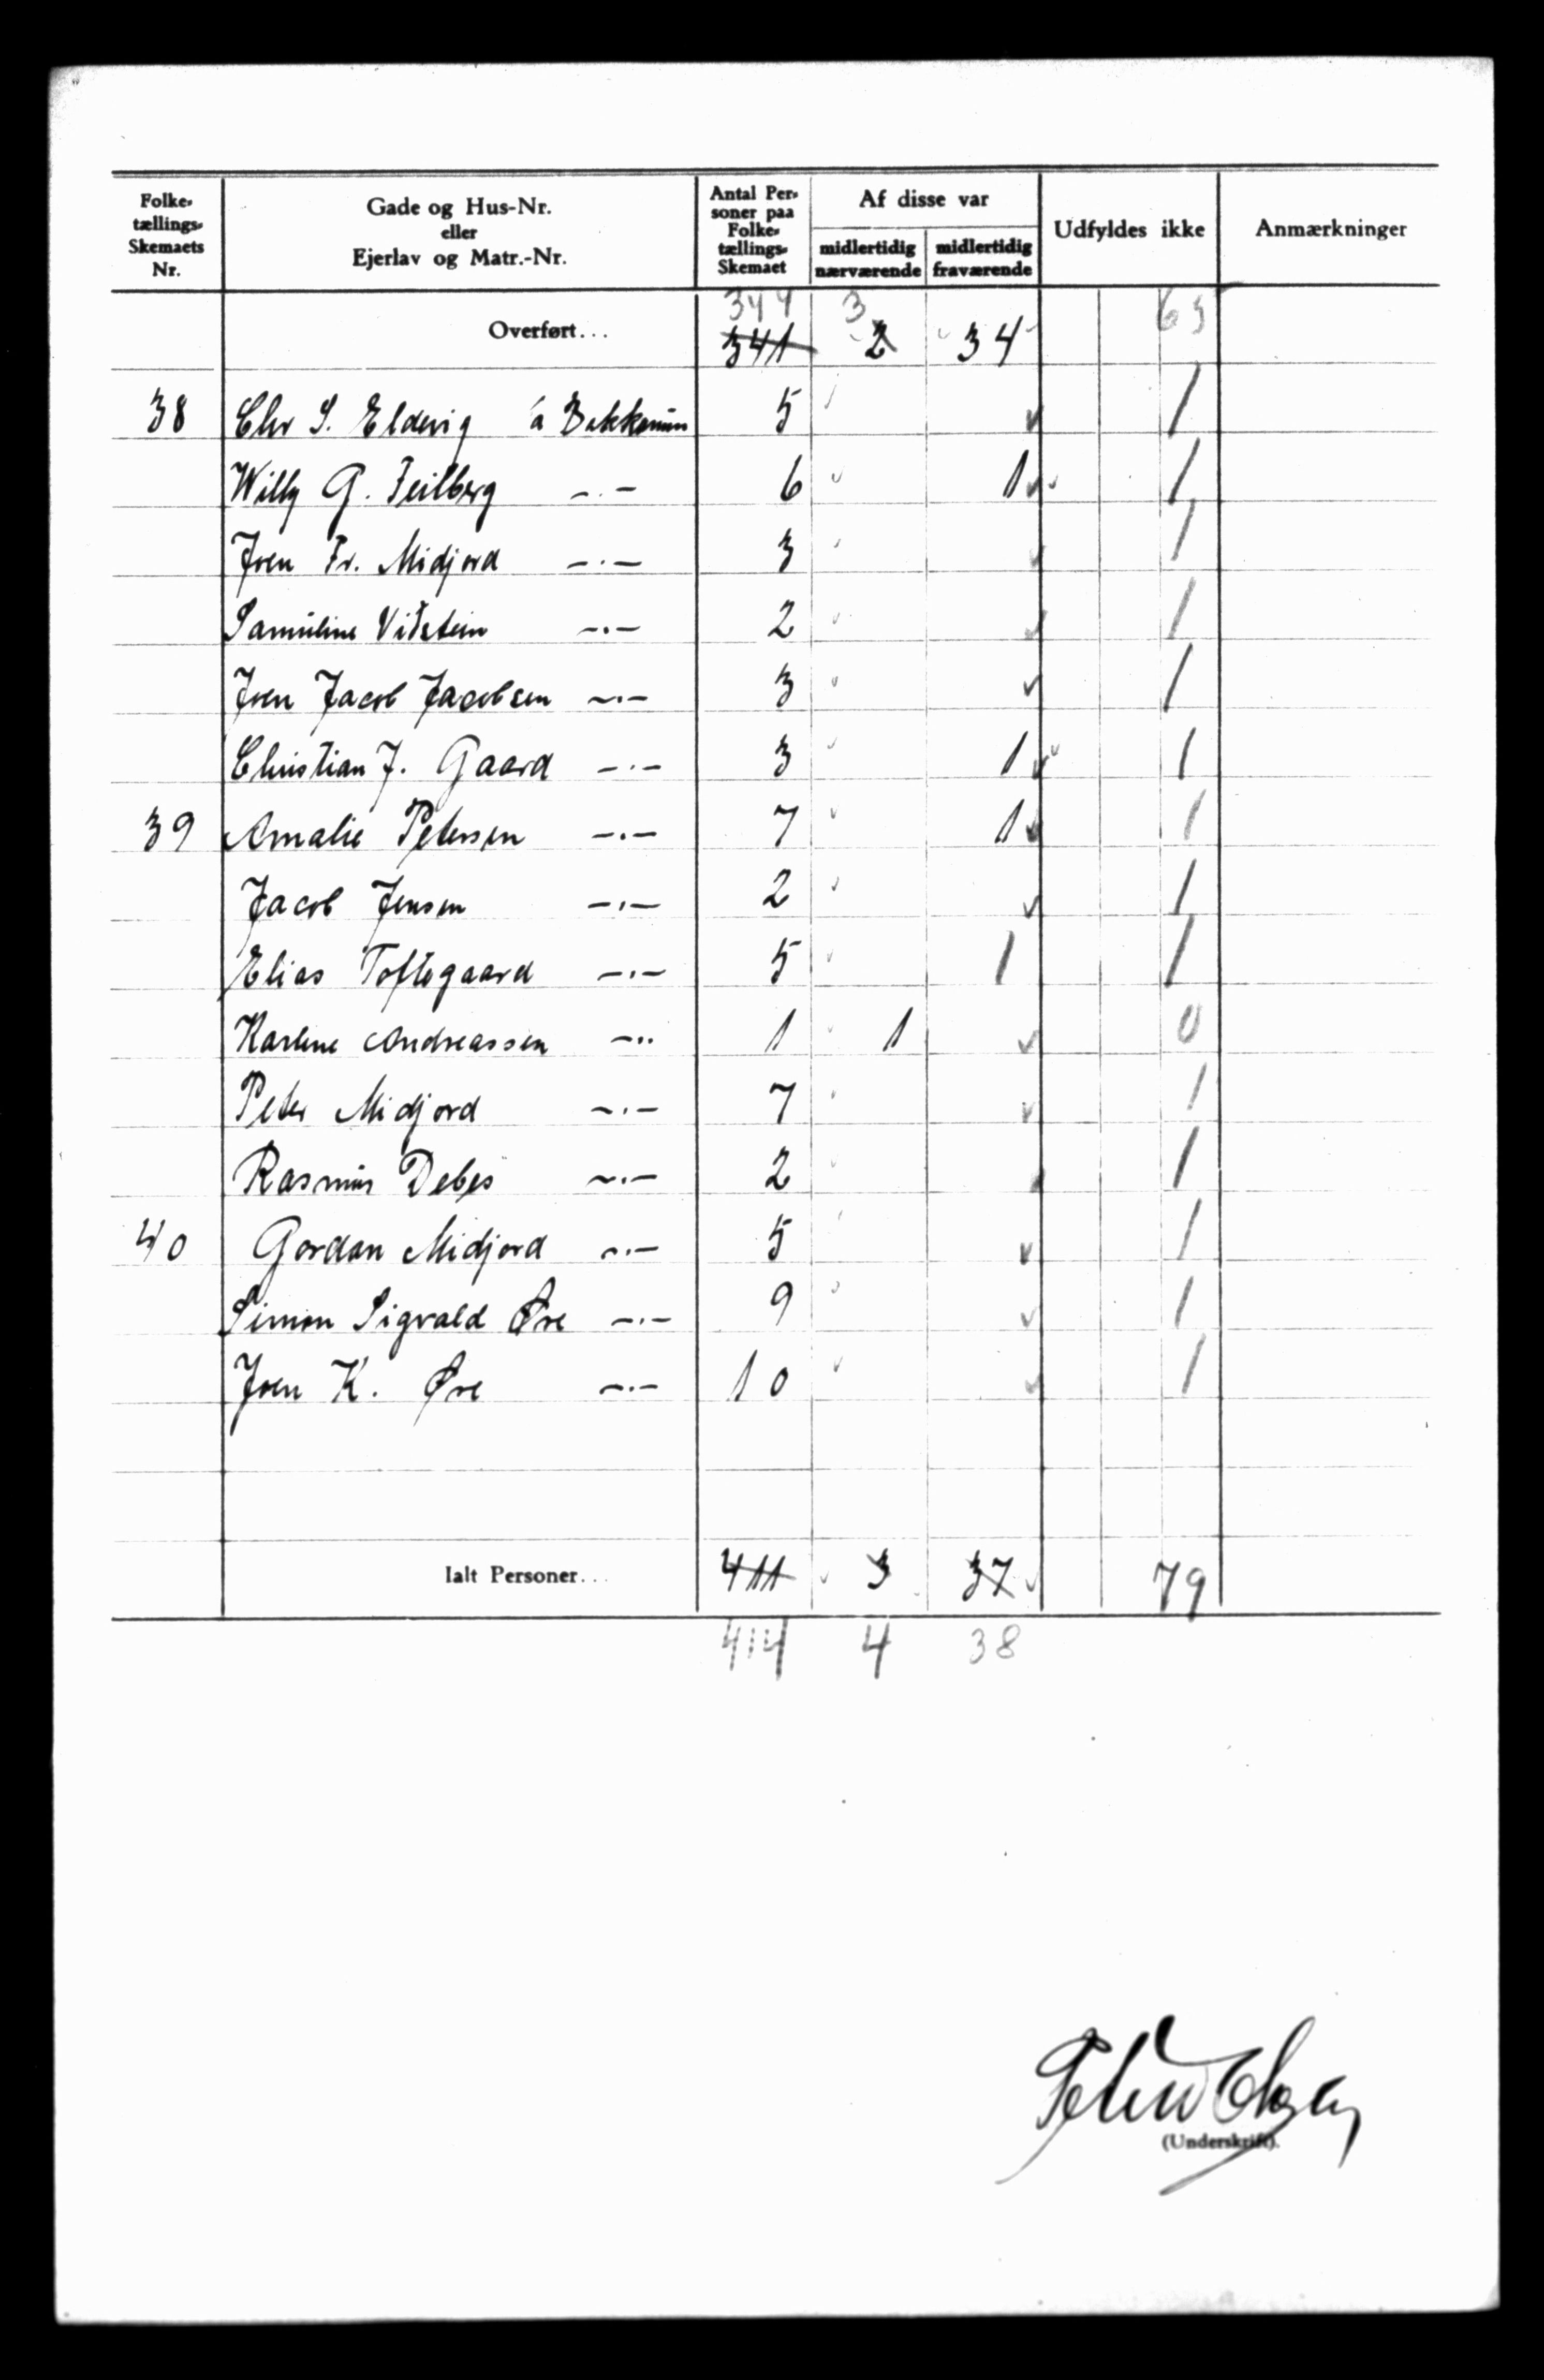 Folketællings-Skemaets Nr. | Gade og Hus-Nr. eller Ejerlav og Matr.-Nr. | Antal Personer paa Folketællings-Skemaet | Af disse var | midlertidig nærværende | midlertidig fraværende | Udfyldes ikke | Anmærkninger
344 3 65
Overført... 341 2 34
38 Chr S. Eldevig á Bakkanum 5 1
Willy G. Feilberg -.- 6 1 1
Joen Fr. Midjord -.- 3 1
Samuline Viðstein -.- 2 1
Joen Jacob Jacobsen -.- 3 1
Christian J. Gaard -.- 3 1 1
39 Amalie Petersen -.- 7 1 1
Jacob Jensen -.- 2 1
Elias Toftegaard -.- 5 1 1
Karlene Andreassen -.. 1 1 0
Peter Midjord -.- 7 1
Rasmus Debes -.- 2 1
40 Gordon Midjord -.- 5 1
Simon Sigvald Øre -.- 9 1
Joen K. Øre -.- 10 1
Ialt Personer... 411 3 37 79
414 4 38
(Underskrift).